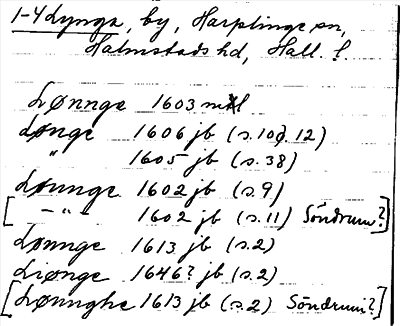 1-4 Lynga, by, Harplinge sn,
Halmstads hd, Hall. l.
Lønnge 1603 mtl
Lønge 1606 jb (s. 10 o. 12)
" 1605 jb (s. 38)
Lounge 1602 jb (s. 9)
[ - " - 1602 jb (s. 11) Söndrum?]
Lønnge 1613 jb (s. 2)
Liønge 1646? jb (s. 2)
[Lønnghe 1613 jb (s. 2) Söndrum?]